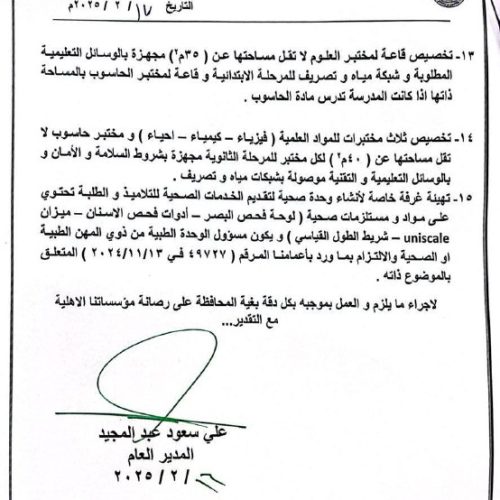 التاريخ ١٧ / ٢ / ٢٠٢٥م
١٣- تخصيص قاعة لمختبر العلوم لا تقل مساحتها عن ( ٣٥م٢) مجهزة بالوسائل التعليمية
المطلوبة و شبكة مياه و تصريف للمرحلة الابتدائية و قاعة لمختبر الحاسوب بالمساحة
ذاتها اذا كانت المدرسة تدرس مادة الحاسوب .
١٤- تخصيص ثلاث مختبرات للمواد العلمية ( فيزياء – كيمياء – احياء ) و مختبر حاسوب لا
تقل مساحتها عن ( ٤٠م٢ ) لكل مختبر للمرحلة الثانوية مجهزة بشروط السلامة و الأمان و
بالوسائل التعليمية و التقنية موصولة بشبكات مياه و تصريف .
١٥- تهيئة غرفة خاصة لأنشاء وحدة صحية لتقديم الخدمات الصحية للتلاميذ و الطلبة تحتوي
على مواد و مستلزمات صحية ( لوحة فحص البصر – أدوات فحص الاسنان – ميزان
uniscale – شريط الطول القياسي ) و يكون مسؤول الوحدة الطبية من ذوي المهن الطبية
او الصحية والالتزام بما ورد بأعمامنا المرقم ( ٤٩٧٢٧ في ٢٠٢٤/١١/١٣ ) المتعلق
بالموضوع ذاته .
لاجراء ما يلزم و العمل بموجبه بكل دقة بغية المحافظة على رصانة مؤسساتنا الاهلية
مع التقدير...
علي سعود عبد المجيد
المدير العام
/ ٢ / ٢٠٢٥